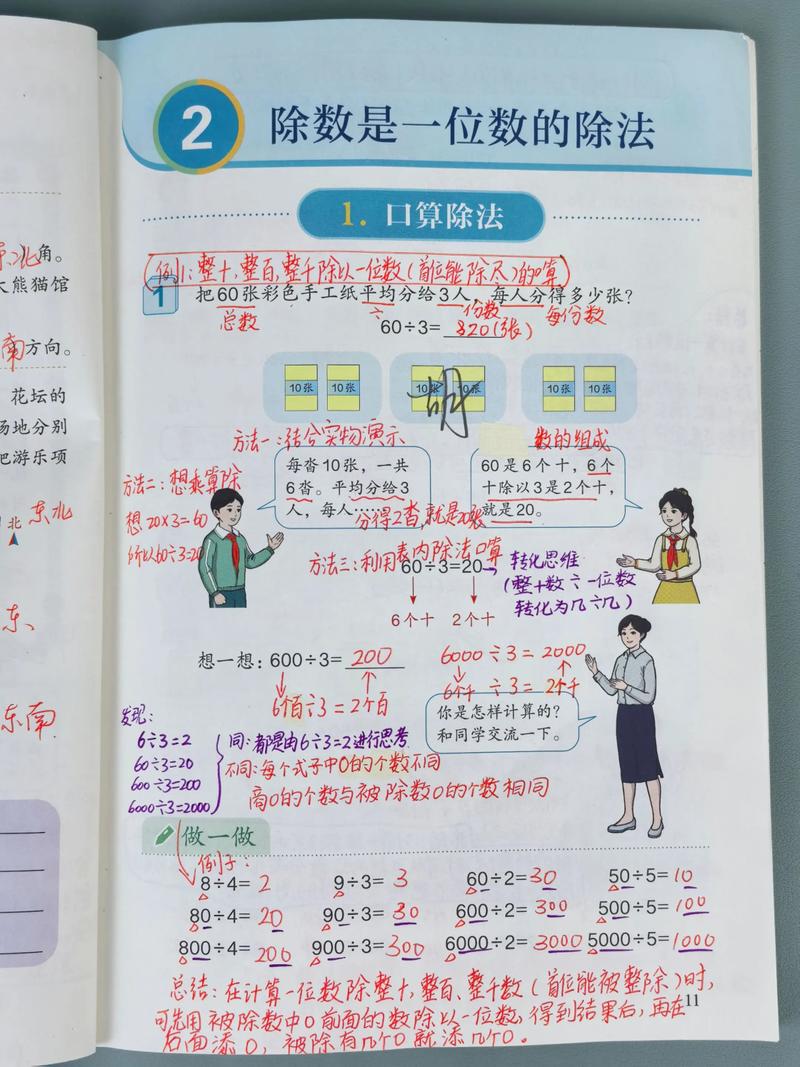 东北
)角。
大熊猫馆
南方向。
花坛的
场地分别
把游乐项
北 东北
东、
东南
2 除数是一位数的除法
1. 口算除法
例1:整十,整百,整千除以一位数(首位能除尽)的口算
1 把60张彩色手工纸平均分给3人,每人分得多少张?
总数 ÷ 份数 每份数
60÷3= 20(张)
10张 10张 10张 10张 10张 10张
胡
方法一:结合实物演示
数的组成
每沓10张,一共
6沓。平均分给3
人,每人……分得2沓,就是20张
60是6个十,6个
十除以3是2个十,
就是20。
方法二:想乘算除
想20×3=60
所以60÷3=20
方法三:利用表内除法口算
60÷3=20
6个十 2个十
转化思维
(整十数÷一位数
转化为几÷几)
想一想:600÷3= 200
6个百÷3=2个百
6000÷3=2000
6个千÷3=2个千
你是怎样计算的?
和同学交流一下。
发现:
6÷3=2
60÷3=20
600÷3=200
6000÷3=2000
同:都是由6÷3=2进行思考
不同:每个式子中0的个数不同
商0的个数与被除数0的个数相同
做一做
例子:
8÷4=2 9÷3=3 60÷2=30 50÷5=10
80÷4=20 90÷3=30 600÷2=300 500÷5=100
800÷4=200 900÷3=300 6000÷2=3000 5000÷5=1000
总结:在计算一位数除整十,整百、整千数(首位能被整除)时,
可先用被除数中0前面的数除以一位数,得到结果后,再在
后面添0,被除有几个0就添几个0。
11